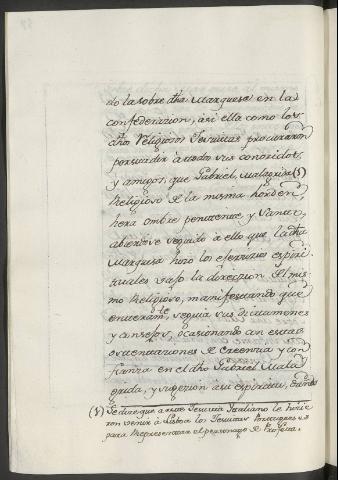 do la sobre dha Marquesa en la
confederazion, asi ella como los
dhos Religiosos Jesuitas procuraron
persuadir à todos sus conozidos,
y amigos, que Gabriel Malagrida (8)
Religioso de la misma horden,
hera ombre penitente y Santo,
abiendose seguido à ello que la dha
Marquesa hizo los exerzizios espiri-
tuales vajo la direczion del mis-
mo Religioso, manifestando que
enteramte seguia sus dictamenes
y consejos, ocasionando con estas
ostentaziones de creenzia y con
fianza en el dho Gabriel Mala
grida, y sugezion à su espiritu,
(8) Se dize que a este Jesuita Italiano le hizie
ron venir à Lisboa los Jesuitas Portugueses
para representar el personage de Profeta.